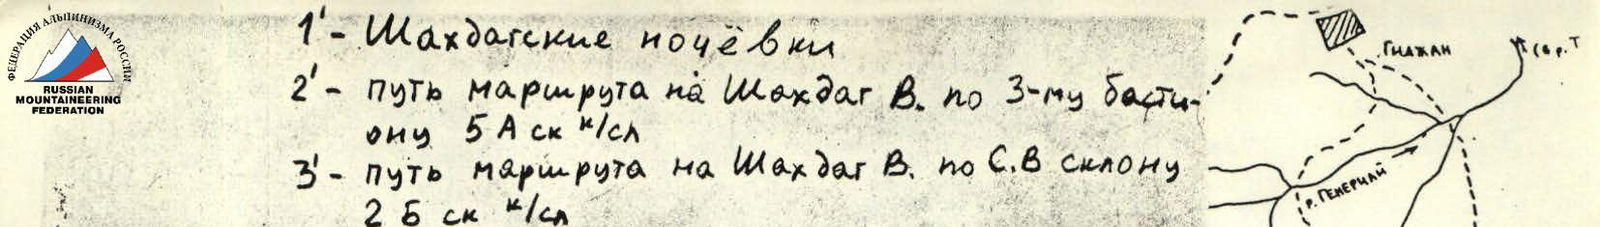 ФЕДЕРАЦИЯ АЛЬПИНИЗМА РОССИИ
RUSSIAN
MOUNTAINEERING
FEDERATION
1' - Шахдагские ночёвки
2' - путь маршрута на Шахдаг В. по 3-му басти-
ону 5А ск к/сл
3' - путь маршрута на Шахдаг В. по С.В склону
2 Б ск к/сл
Гиджан
р. ГЕНЕРЧАЙ